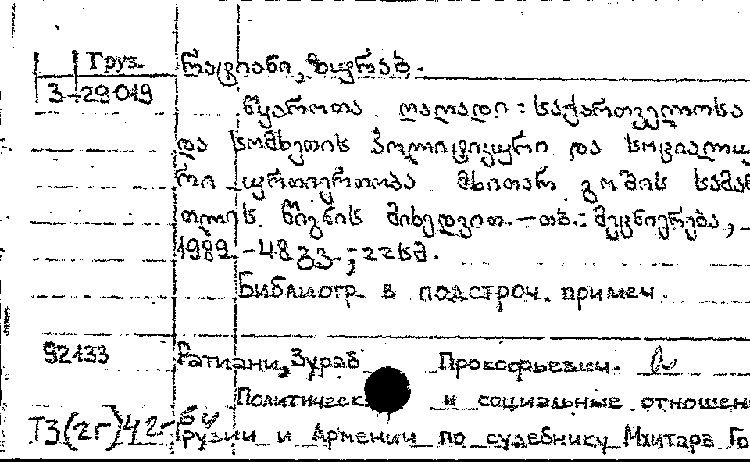 Груз. რატიანი, ზურაბ.
3-29019
წყაროთა ღაღადი : საქართველოსა
და სომხეთის პოლიტიკური და სოციალუ
რი ურთიერთობა მხითარ გოშის სამარ
თლის წიგნის მიხედვით. — თბ.: მეცნიერება,
1989 - 48 გვ. ; 22 სმ.
Библиогр. в подстроч. примеч.
92133 Ратиани, Зураб Прокофьевич.
Политическ и социальные отношен
Т3(2Г)42
Грузии и Армении по судебнику Мхитара Го